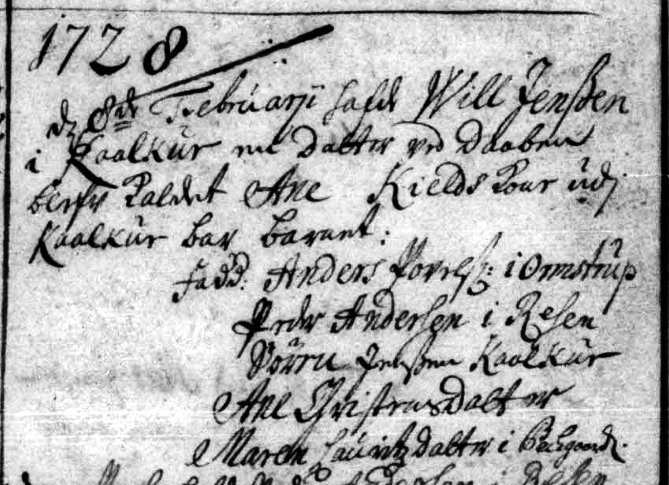 1728
dz 8de Februarij hafde Will Jenßen
i Kaalkur en datter ved daaben
blefv kaldet Ane Kields Kone udj
Kaalkur bar barnet:
Fadd: Anders Povelß: i Ormstrup
Peder Andersen i Resen
Sören Jenßen Kaalkur
Ane Christensdatter
Maren Lauritzdatter i
Resen